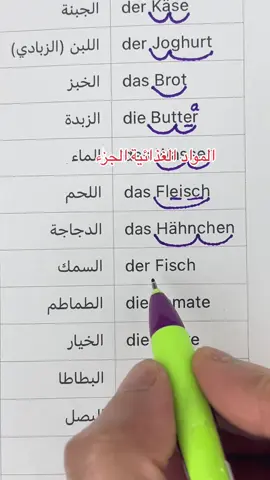 der Käse الجبنة
der Joghurt اللبن (الزبادي)
das Brot الخبز
die Butter الزبدة
الماء
المواد الغذائية الجزء
das Fleisch اللحم
das Hähnchen الدجاجة
der Fisch السمك
die الطماطم
die الخيار
البطاطا
البصل